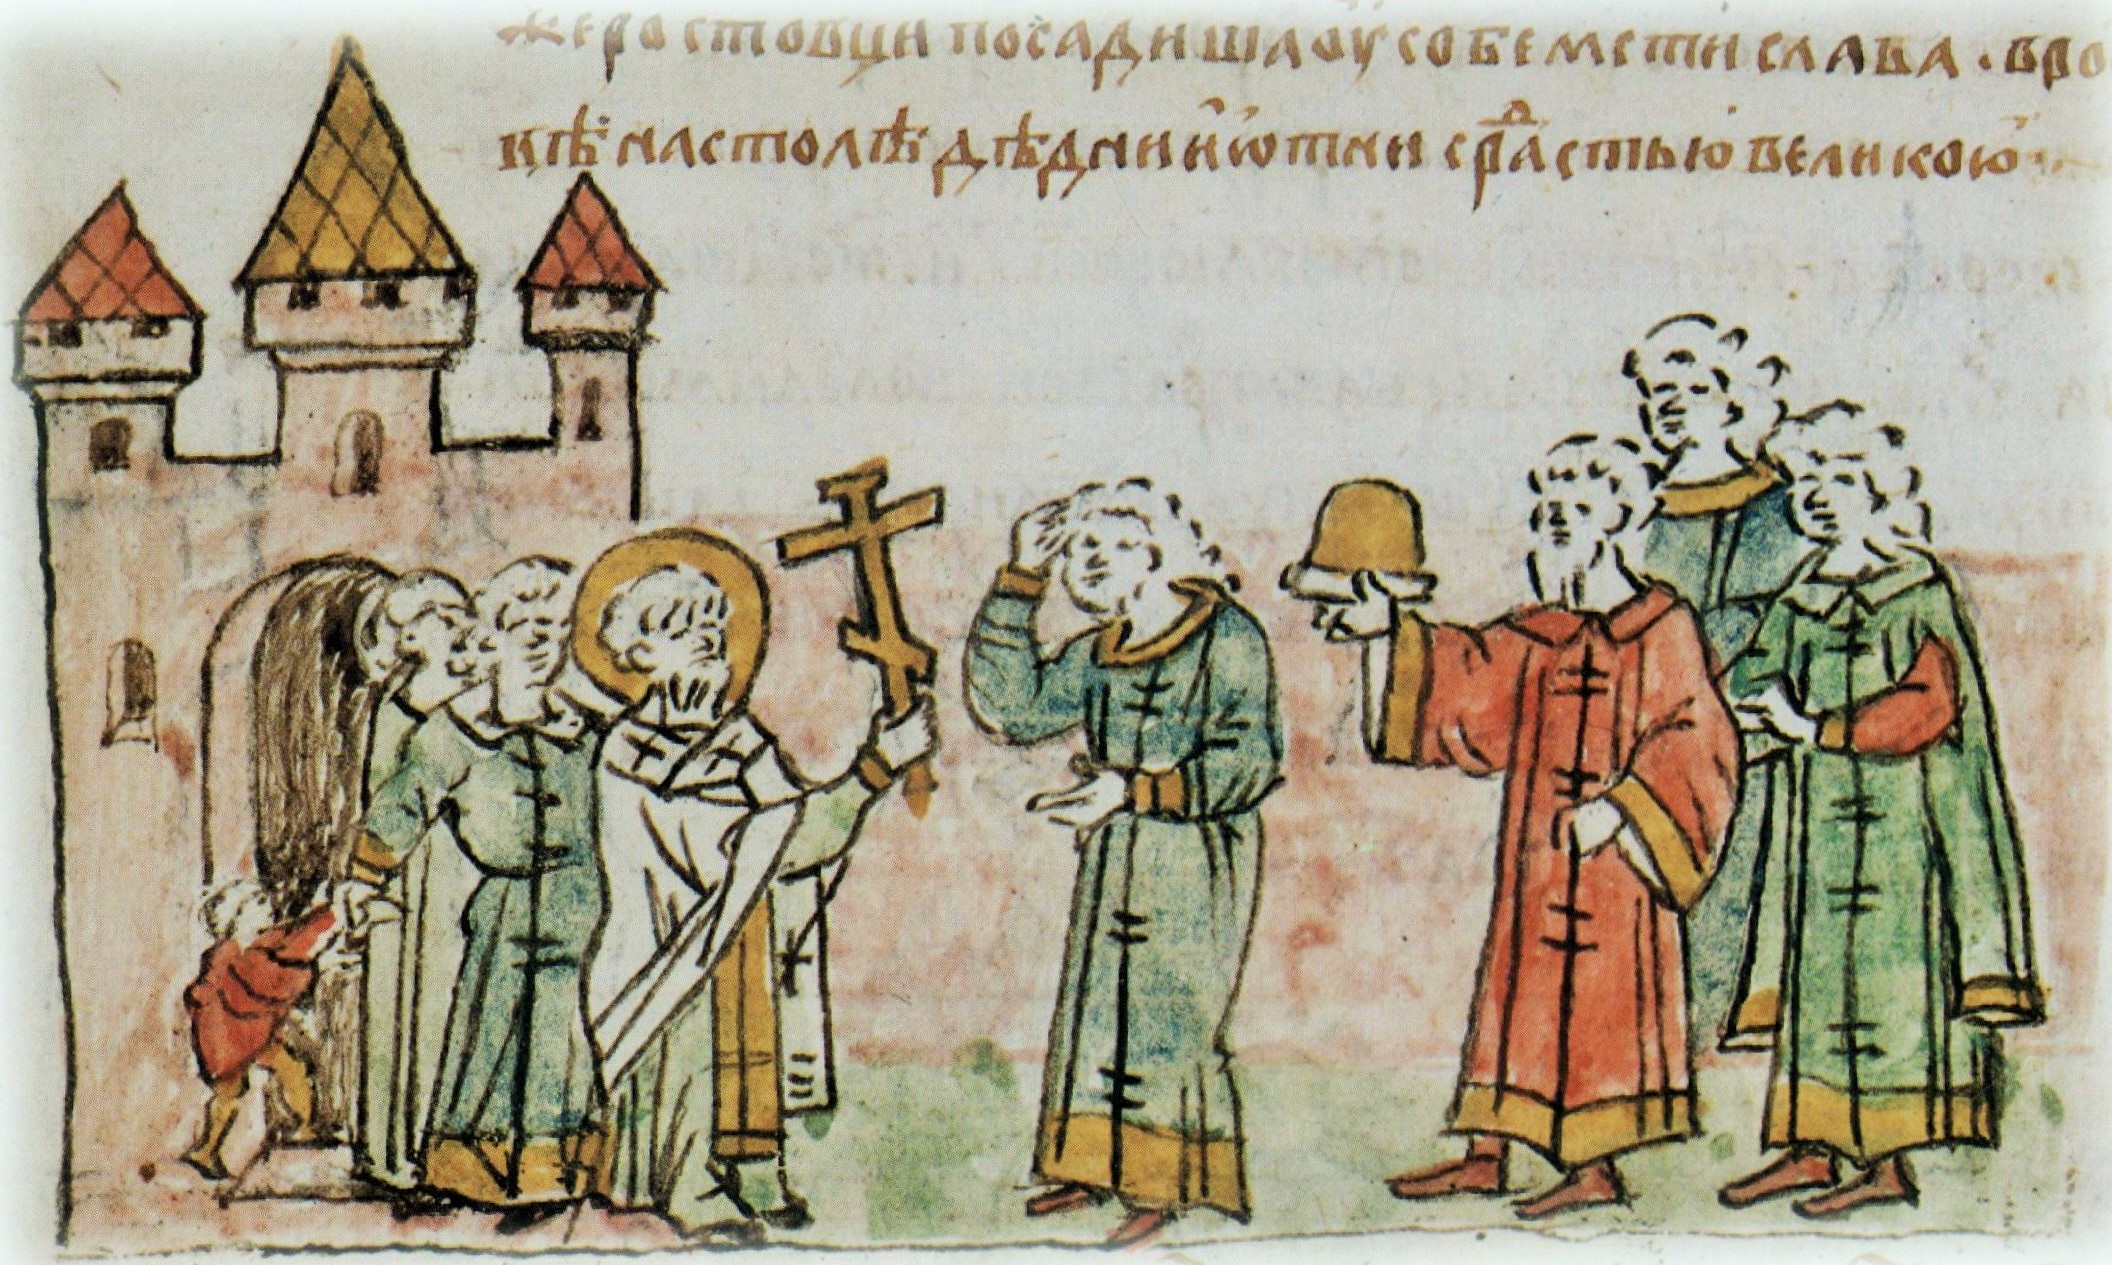 же ростовци посадиша оу собе мстислава . вро
вѣ на столѣ дѣдни и ѿтни с раⷣстью великою